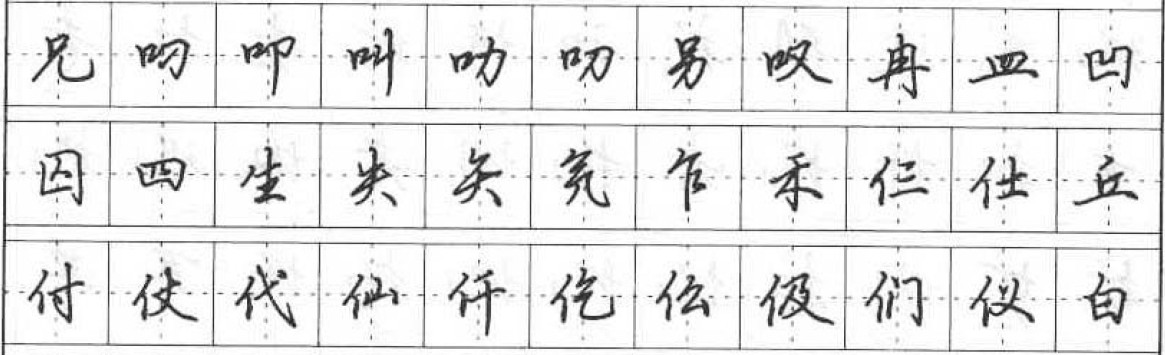 兄叼叩叫叻叨另叹冉皿凹
囚四生失矢氕乍禾仨仕丘
付仗代仙仟仡仫伋们仪白